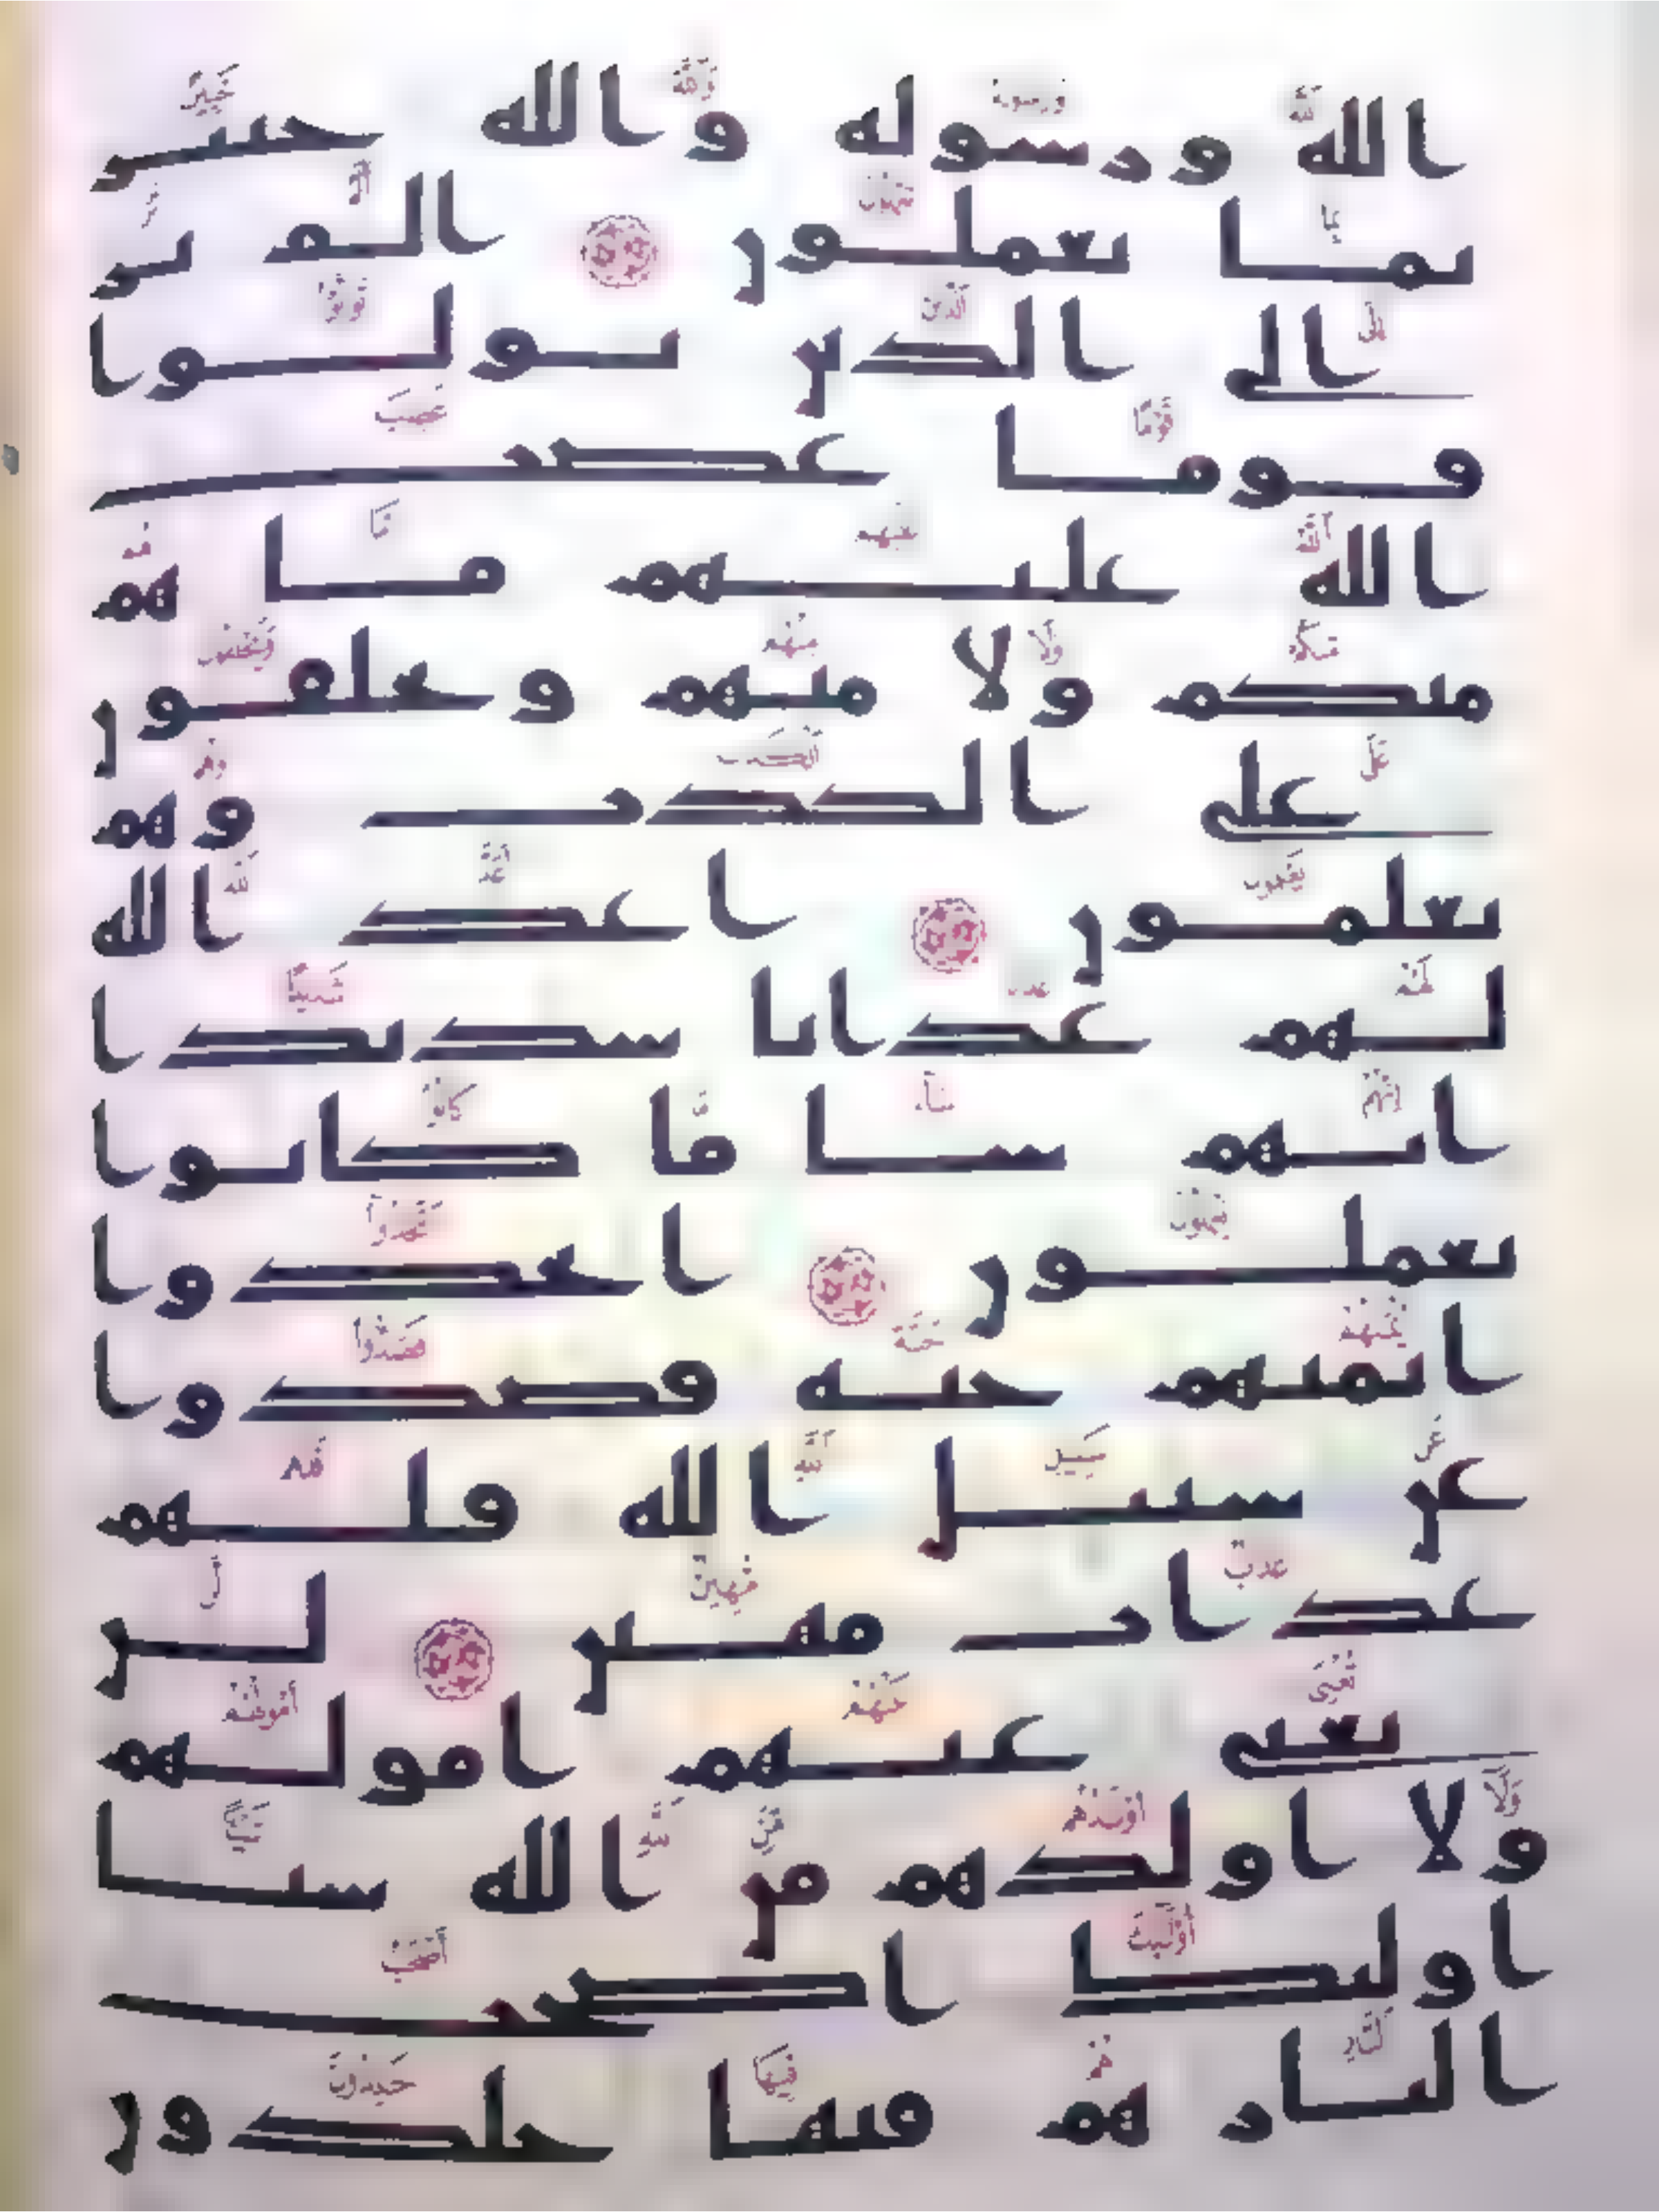 الله ورسوله والله خبير
بما تعملون الم تر
الى الذين تولوا
قوما غضب
الله عليهم ما هم
منكم ولا منهم ويحلفون
على الكذب وهم
يعلمون اعد الله
لهم عذابا شديدا
انهم سا ما كانوا
يعملون اتخذوا
ايمنهم جنة فصدوا
عن سبيل الله فلهم
عذاب مهين لن
تغنى عنهم امولهم
ولا اولدهم من الله شيا
اوليك اصحب
النار هم فيها خلدون